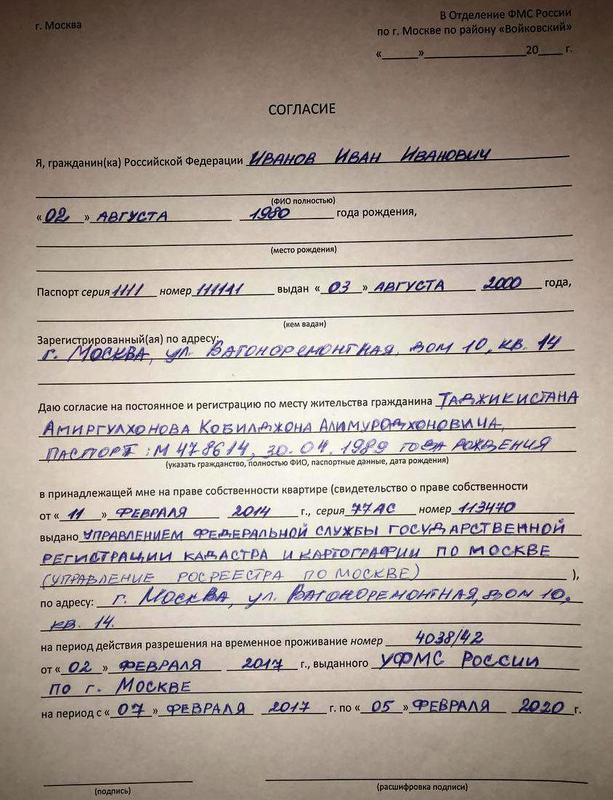 г. Москва
В Отделение ФМС России
по г. Москве по району «Войковский»
«______»____________________20____ г.
СОГЛАСИЕ
Я, гражданин(ка) Российской Федерации ИВАНОВ ИВАН ИВАНОВИЧ
(ФИО полностью)
«02» АВГУСТА 1980 года рождения,
(место рождения)
Паспорт серия 1111 номер 111111 выдан «03» АВГУСТА 2000 года,
(кем вадан)
Зарегистрированный(ая) по адресу:
г. МОСКВА, ул. ВАГОНОРЕМОНТНАЯ, ДОМ 10, КВ. 14
Даю согласие на постоянное и регистрацию по месту жительства гражданина ТАДЖИКИСТАНА
АМИРГУЛХОНОВА КОБИЛДЖОНА АЛИМУРОДХОНОВИЧА,
ПАСПОРТ: М 478614, 30.04.1989 ГОДА РОЖДЕНИЯ
(указать гражданство, полностью ФИО, паспортные данные, дата рождения)
в принадлежащей мне на праве собственности квартире (свидетельство о праве собственности
от «11» ФЕВРАЛЯ 2014 г., серия 77АС номер 113470
выдано УПРАВЛЕНИЕМ ФЕДЕРАЛЬНОЙ СЛУЖБЫ ГОСУДАРСТВЕННОЙ
РЕГИСТРАЦИИ КАДАСТРА И КАРТОГРАФИИ ПО МОСКВЕ
(УПРАВЛЕНИЕ РОСРЕЕСТРА ПО МОСКВЕ) ),
по адресу: г. МОСКВА, ул. ВАГОНОРЕМОНТНАЯ, ДОМ 10,
КВ. 14.
на период действия разрешения на временное проживание номер 4038/42
от «02» ФЕВРАЛЯ 2017 г., выданного УФМС РОССИИ
ПО г. МОСКВЕ
на период с «07» ФЕВРАЛЯ 2017 г. по «05» ФЕВРАЛЯ 2020 г.
(подпись) (расшифровка подписи)